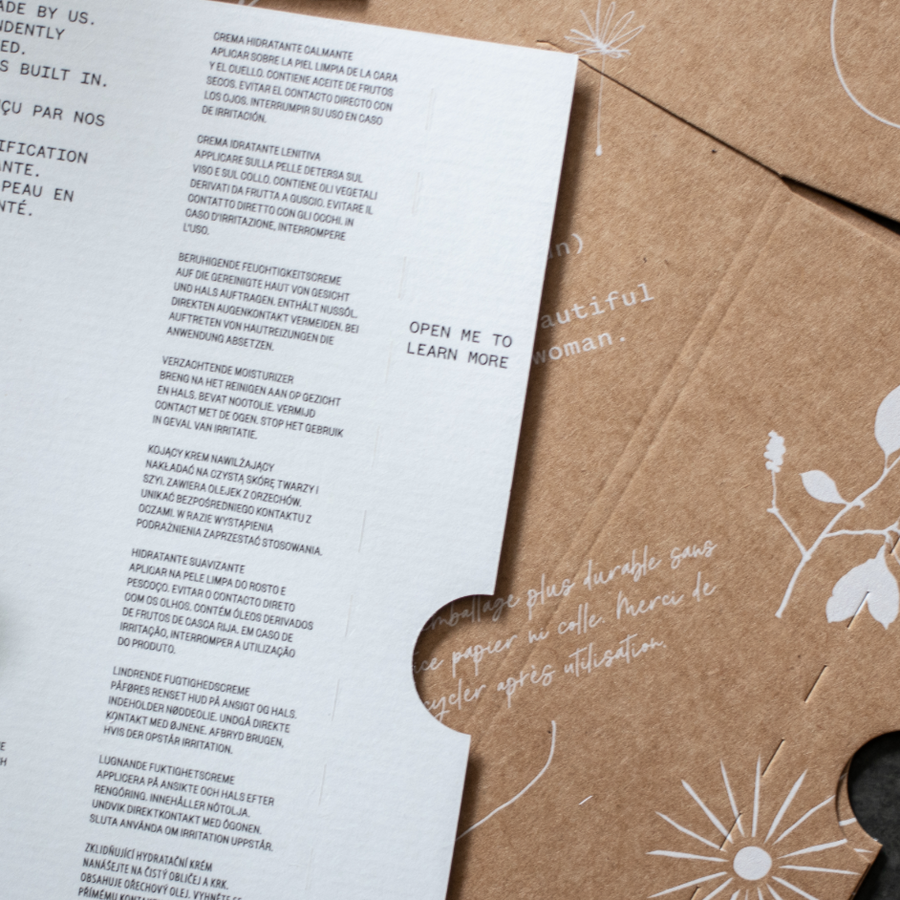 ADE BY US.
NDENTLY
ED.
S BUILT IN.
ÇU PAR NOS
IFICATION
ANTE.
PEAU EN
NTÉ.
CREMA HIDRATANTE CALMANTE
APLICAR SOBRE LA PIEL LIMPIA DE LA CARA
Y EL CUELLO. CONTIENE ACEITE DE FRUTOS
SECOS. EVITAR EL CONTACTO DIRECTO CON
LOS OJOS. INTERRUMPIR SU USO EN CASO
DE IRRITACIÓN.
CREMA IDRATANTE LENITIVA
APPLICARE SULLA PELLE DETERSA SUL
VISO E SUL COLLO. CONTIENE OLI VEGETALI
DERIVATI DA FRUTTA A GUSCIO. EVITARE IL
CONTATTO DIRETTO CON GLI OCCHI. IN
CASO D'IRRITAZIONE, INTERROMPERE
L'USO.
BERUHIGENDE FEUCHTIGKEITSCREME
AUF DIE GEREINIGTE HAUT VON GESICHT
UND HALS AUFTRAGEN. ENTHÄLT NUSSÖL.
DIREKTEN AUGENKONTAKT VERMEIDEN. BEI
AUFTRETEN VON HAUTREIZUNGEN DIE
ANWENDUNG ABSETZEN.
VERZACHTENDE MOISTURIZER
BRENG NA HET REINIGEN AAN OP GEZICHT
EN HALS. BEVAT NOOTOLIE. VERMIJD
CONTACT MET DE OGEN. STOP HET GEBRUIK
IN GEVAL VAN IRRITATIE.
KOJĄCY KREM NAWILŻAJĄCY
NAKŁADAĆ NA CZYSTĄ SKÓRĘ TWARZY I
SZYI. ZAWIERA OLEJEK Z ORZECHÓW.
UNIKAĆ BEZPOŚREDNIEGO KONTAKTU Z
OCZAMI. W RAZIE WYSTĄPIENIA
PODRAŻNIENIA ZAPRZESTAĆ STOSOWANIA.
HIDRATANTE SUAVIZANTE
APLICAR NA PELE LIMPA DO ROSTO E
PESCOÇO. EVITAR O CONTACTO DIRETO
COM OS OLHOS. CONTÉM ÓLEOS DERIVADOS
DE FRUTOS DE CASCA RIJA. EM CASO DE
IRRITAÇÃO, INTERROMPER A UTILIZAÇÃO
DO PRODUTO.
LINDRENDE FUGTIGHEDSCREME
PÅFØRES RENSET HUD PÅ ANSIGT OG HALS.
INDEHOLDER NØDDEOLIE. UNDGÅ DIREKTE
KONTAKT MED ØJNENE. AFBRYD BRUGEN,
HVIS DER OPSTÅR IRRITATION.
LUGNANDE FUKTIGHETSCREME
APPLICERA PÅ ANSIKTE OCH HALS EFTER
RENGÖRING. INNEHÅLLER NÖTOLJA.
UNDVIK DIREKTKONTAKT MED ÖGONEN.
SLUTA ANVÄNDA OM IRRITATION UPPSTÅR.
ZKLIDŇUJÍCÍ HYDRATAČNÍ KRÉM
NANÁŠEJTE NA ČISTÝ OBLIČEJ A KRK.
OBSAHUJE OŘECHOVÝ OLEJ. VYHNĚTE SE
PŘÍMÉMU KONTAKTU
E
H
OPEN ME TO
LEARN MORE
n)
autiful
woman.
emballage plus durable sans
ice papier ni colle. Merci de
cycler après utilisation.